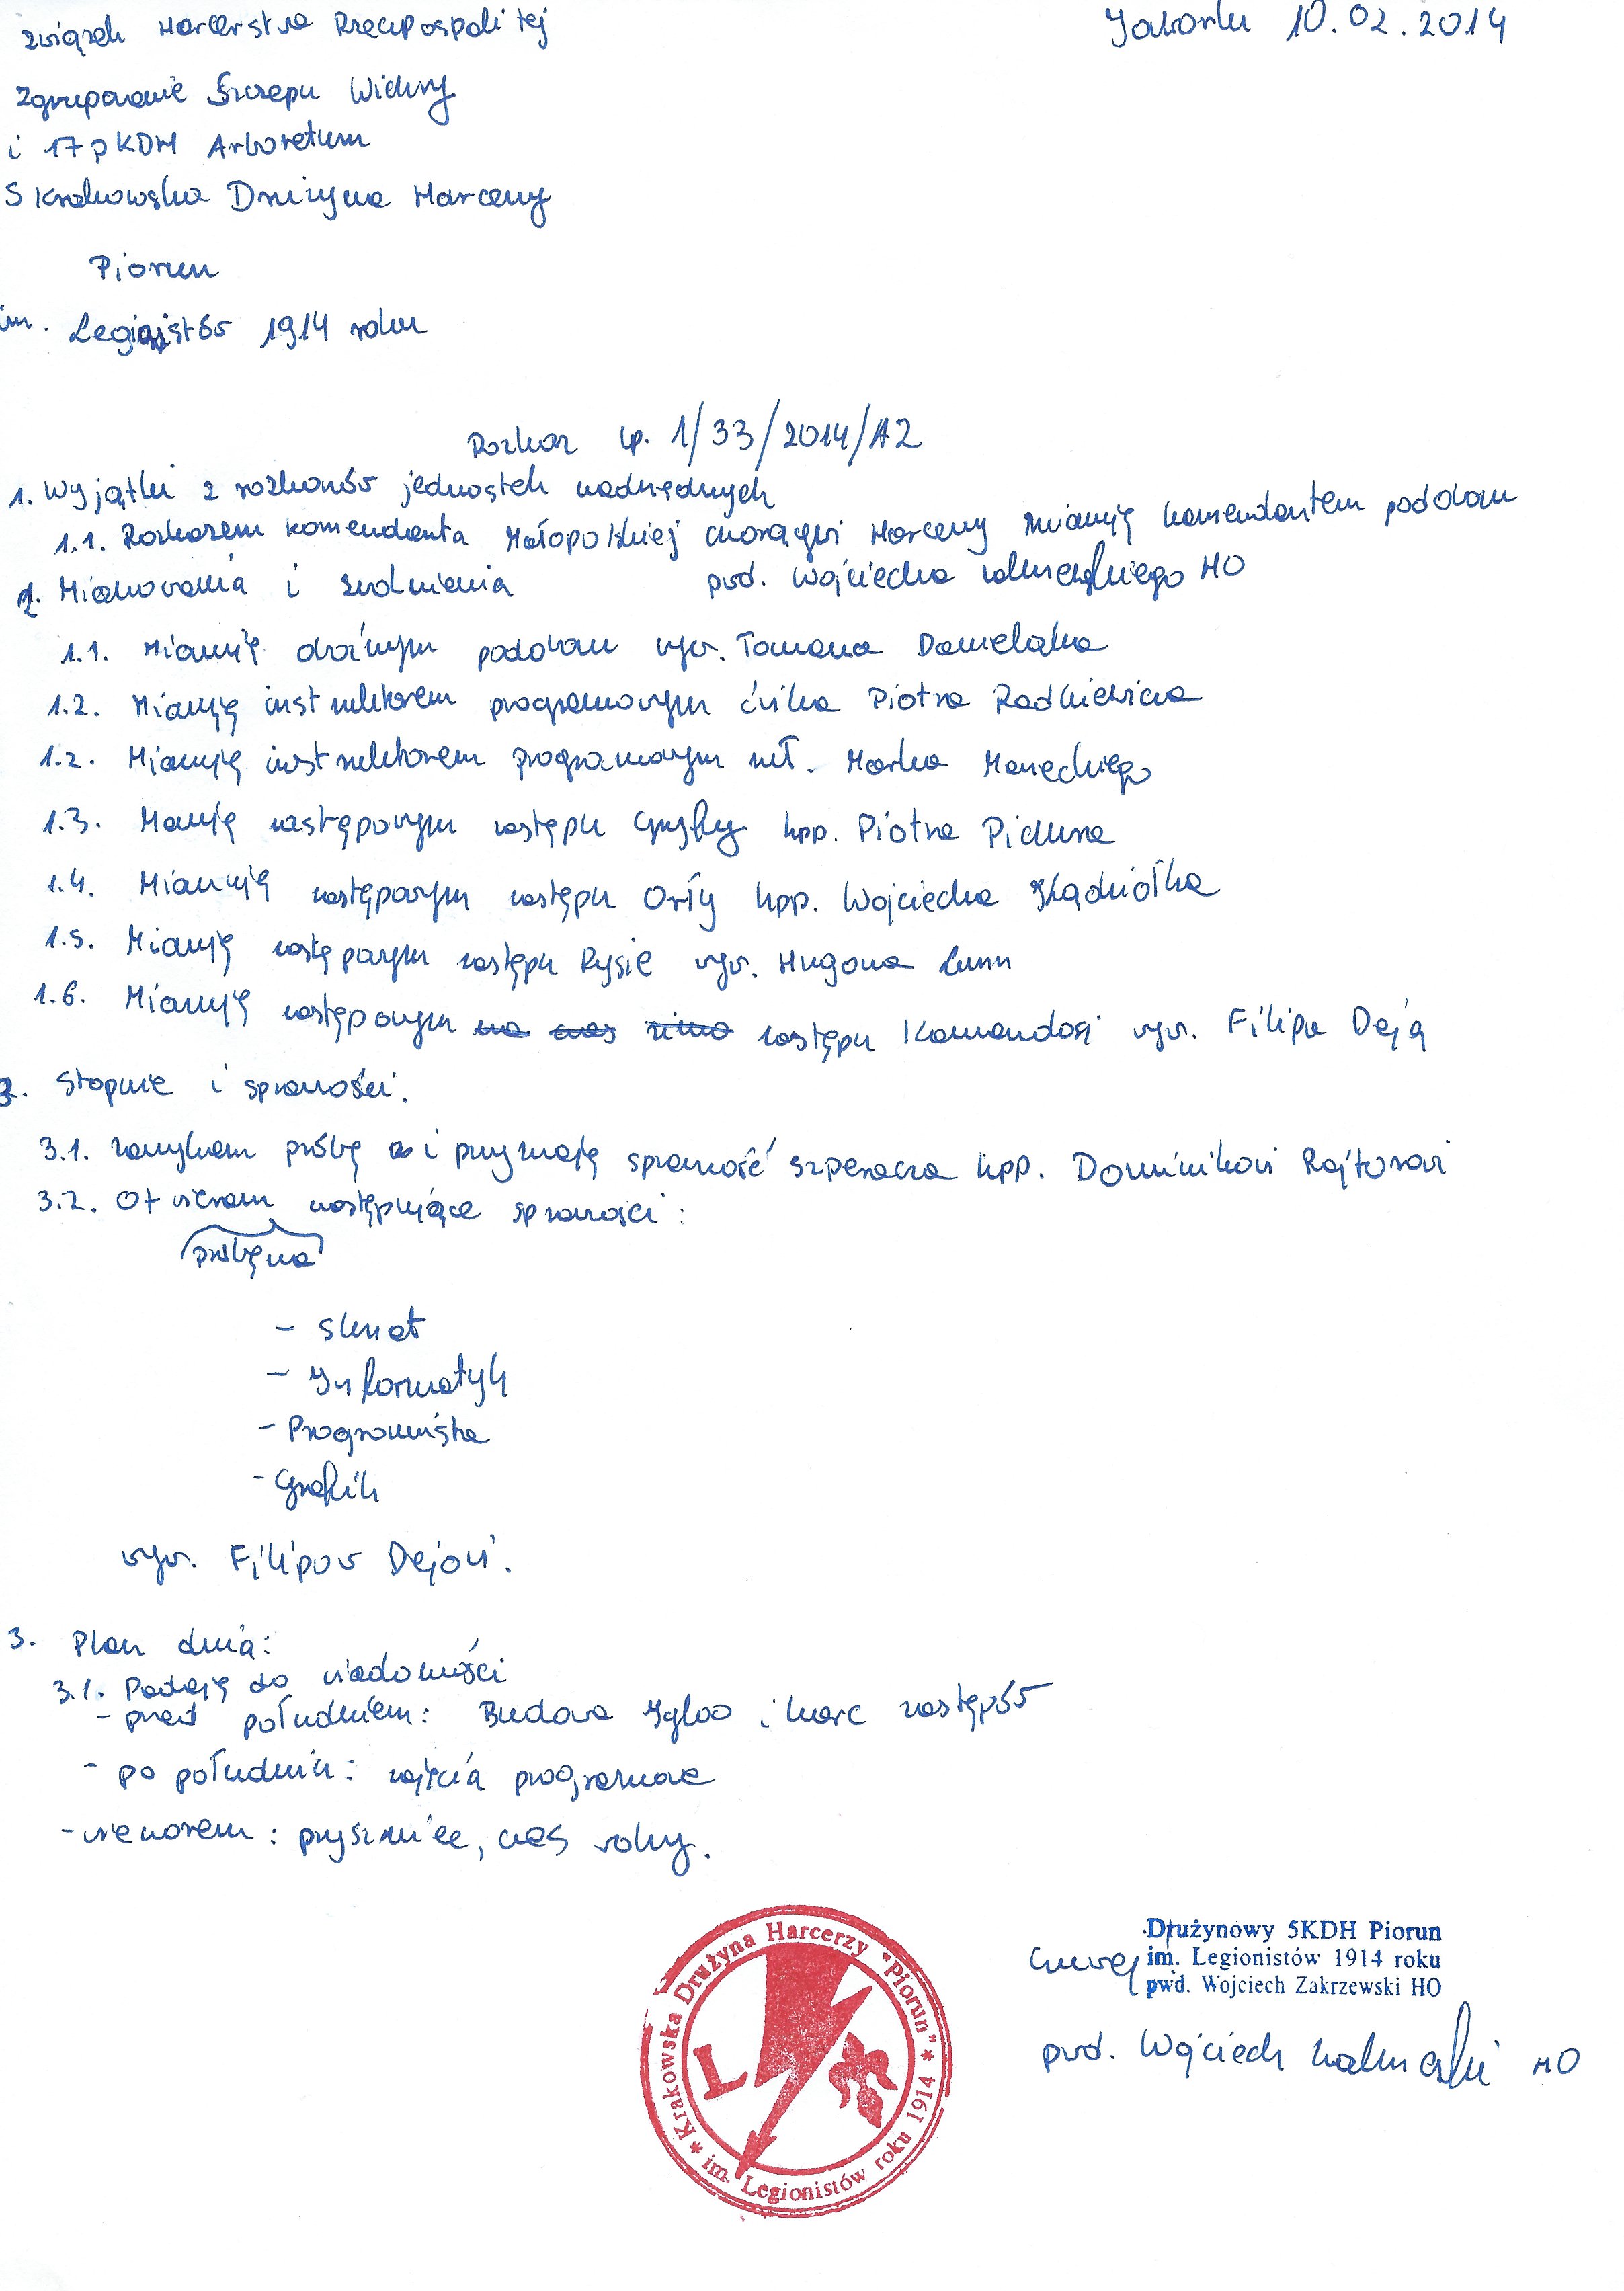 Związek Harcerstwa Rzeczpospolitej
Jaworki 10.02.2014
Zgrupowanie Szczepu Wichry
i 17pKDH Arboretum
5 Krakowska Drużyna Harcerzy
Piorun
im. Legionistów 1914 roku
Rozkaz Lp. 1/33/2014/AZ
1. Wyjątki z rozkazów jednostek nadrzędnych
1.1. Rozkazem Komendanta Małopolskiej Chorągwi Harcerzy mianuję komendantem podobozu
pwd. Wojciecha Zakrzewskiego HO
2. Mianowania i zwolnienia
1.1. Mianuję oboźnym podobozu wyw. Tomasza Danielaka
1.2. Mianuję instruktorem programowym ćwika Piotra Radkiewicza
1.2. Mianuję instruktorem programowym mł. Marka Maneckiego
1.3. Mianuję zastępowym zastępu Gryfy hpp. Piotra Pichura
1.4. Mianuję zastępowym zastępu Orły hpp. Wojciecha Żłądziołka
1.5. Mianuję zastępowym zastępu Rysie wyw. Hugona
1.6. Mianuję zastępowym na czas zimo zastępu Komandosi wyw. Filipa Deją
3. Stopnie i sprawności.
3.1. Zamykam próbę i przyznaję sprawność szperacza hpp. Dominikowi Rajtorowi
3.2. Otwieram następujące sprawności:
próbę na
- Skaut
- Informatyk
- Programista
- Grafik
wyw. Filipow Dejowi.
3. Plan dnia:
3.1. Podaję do wiadomości
- przed południem: Budowa Igloo i harc zastępów
- po południu: zajęcia programowe
- wieczorem: prysznice, czas wolny.
Krakowska Drużyna Harcerzy "Piorun" * im. Legionistów roku 1914 *
L
Drużynowy 5KDH Piorun
Czuwaj im. Legionistów 1914 roku
pwd. Wojciech Zakrzewski HO
pwd. Wojciech Zakrzewski HO